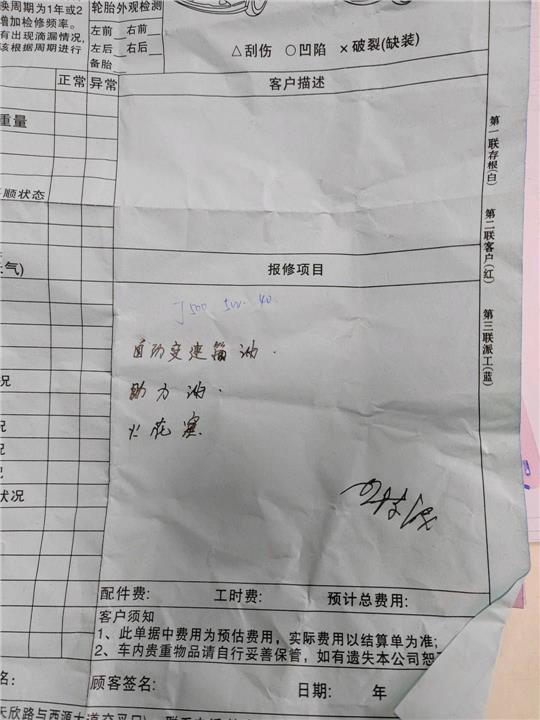 换周期为1年或2
增加检修频率。
有出现滴漏情况,
该根据周期进行
轮胎外观检测
左前 右前
左后 右后
备胎
△刮伤 ○凹陷 ×破裂(缺装)
正常 异常
客户描述
重量
顺状态
气)
报修项目
J500 5W-40.
自动变速箱油.
助力油.
火花塞
况
况
况
况
状况
第一联存根(白)
第二联客户(红)
第三联派工(蓝)
配件费: 工时费: 预计总费用:
客户须知
1、此单据中费用为预估费用,实际费用以结算单为准;
2、车内贵重物品请自行妥善保管,如有遗失本公司恕
名: 顾客签名: 日期: 年
天欣路与西源大道交叉口)